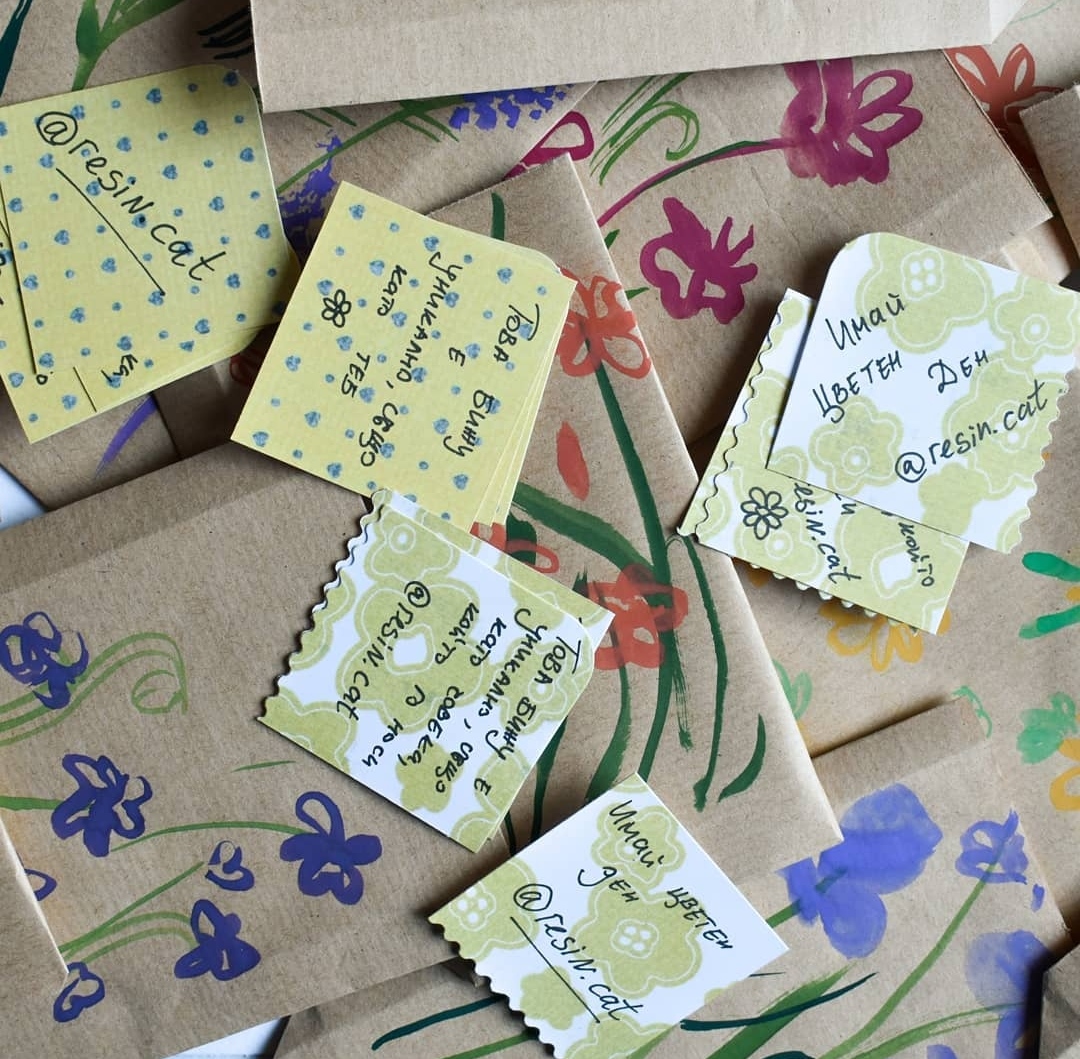 @resin.cat
Това бижу
е
уникално, също
като
теб
Имай
цветен ден
@resin.cat
който
resin.cat
Това бижу е
уникално, също
като човека,
който го носи
@resin.cat
Имай цветен
ден
@resin.cat